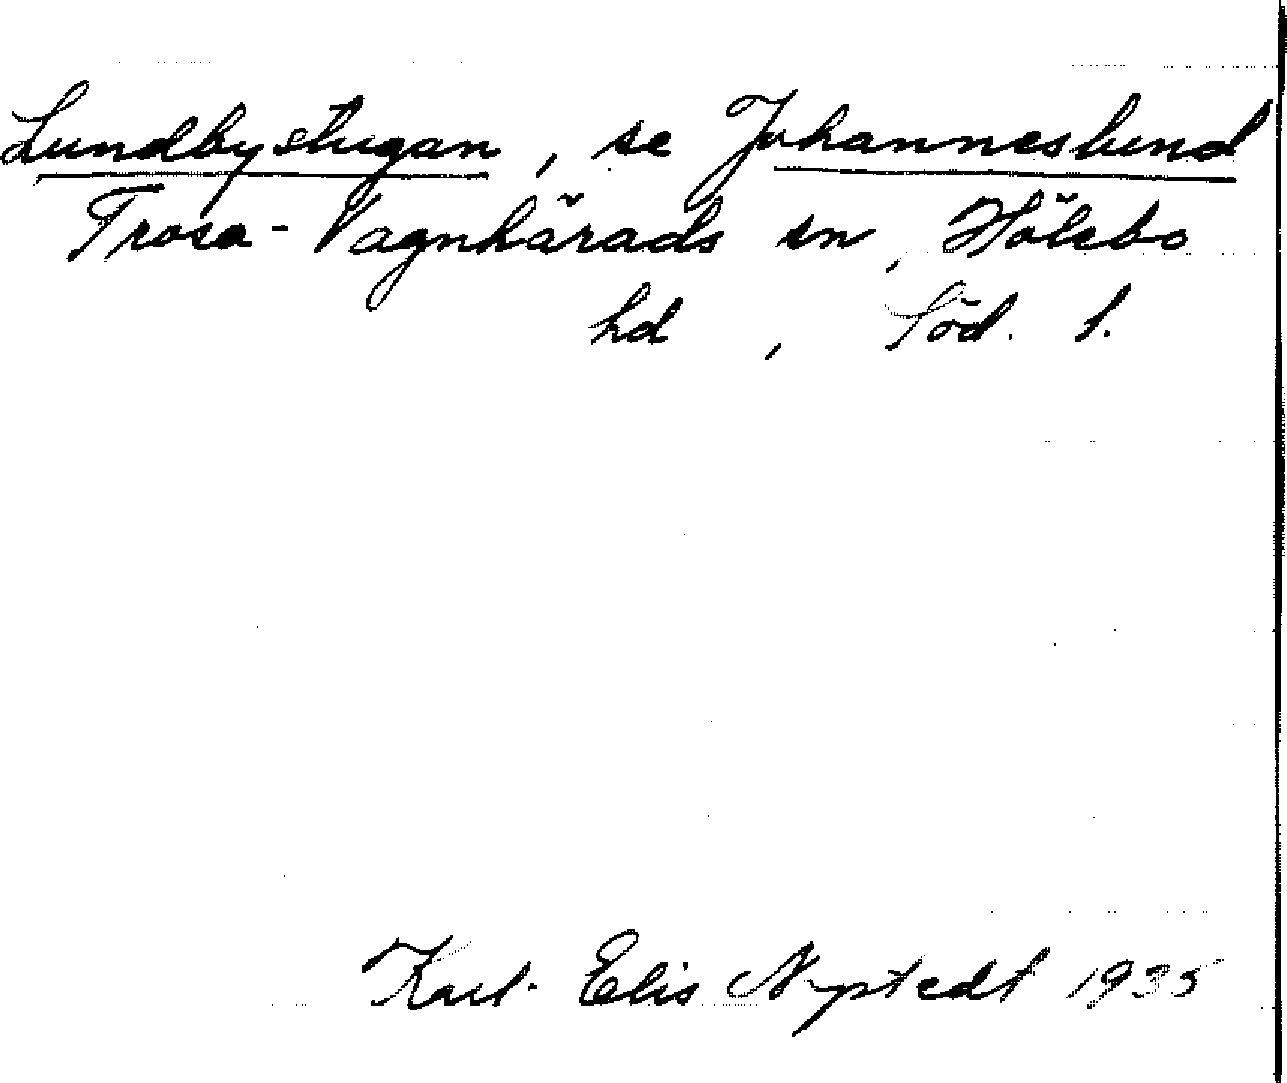 Lundbystugan, se Johanneslund
Trosa-Vagnhärads sn, Hölebo
hd, Söd. l.
Karl-Elis Nystedt 1935